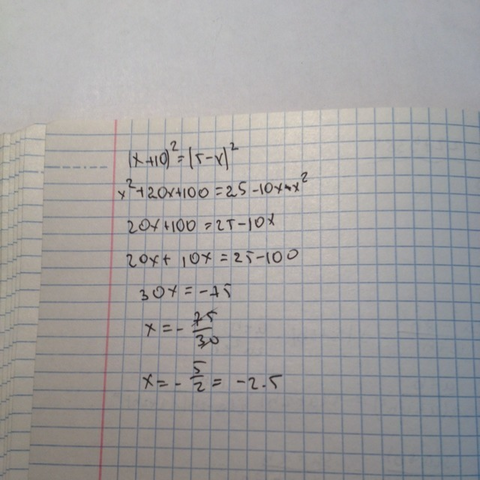 (x+10)²=(5-x)²
x²+20x+100=25-10x+x²
20x+100=25-10x
20x+10x=25-100
30x=-75
x=-75/30
x=-5/2=-2.5